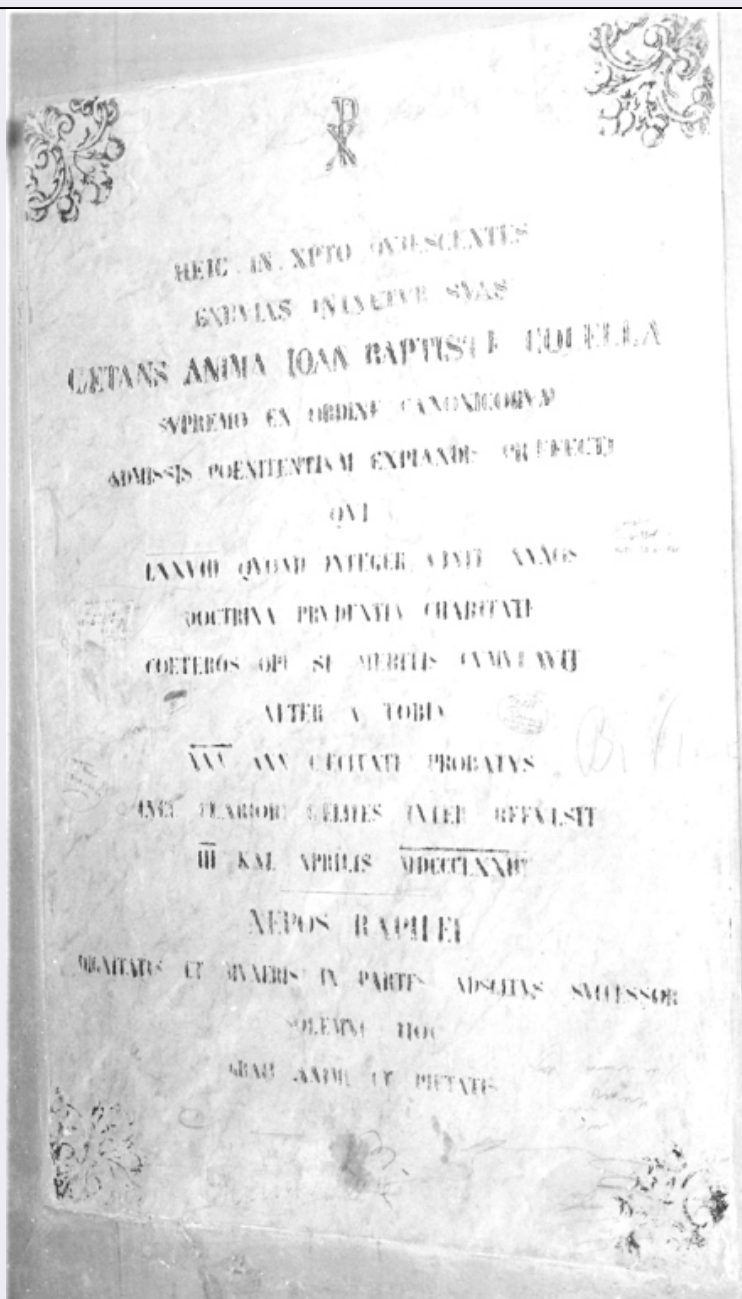 HEIC IN XPTO QVIESCENTES
EXEVIAS INTVETVR SVAS
GETANS ANIMA IOAN BAPTISTE COLELLA
SVPREMO EX ORDINE CANONICORVM
ADMISSIS POENITENTIVM EXPIANDIS PRAEFECTI
QVI
LXXVIII INTEGER VIXIT ANNOS
DOCTRINA PRVDENTIA CHARITATE
COETEROS OPE SE MERITIS CVMVLAVIT
ALTER A TOBIA
XXV ANN CECITATE PROBATVS
LVCE CLARIORI CELITES INTER REFVLSIT
III KAL APRILIS
NEPOS RAPHAEL
DIGNITATIS ET MVNERIS IN PARTEM ADSCITVS SVCCESSOR
SOLEMNE HOC
GRATI ANIMI ET PIETATIS